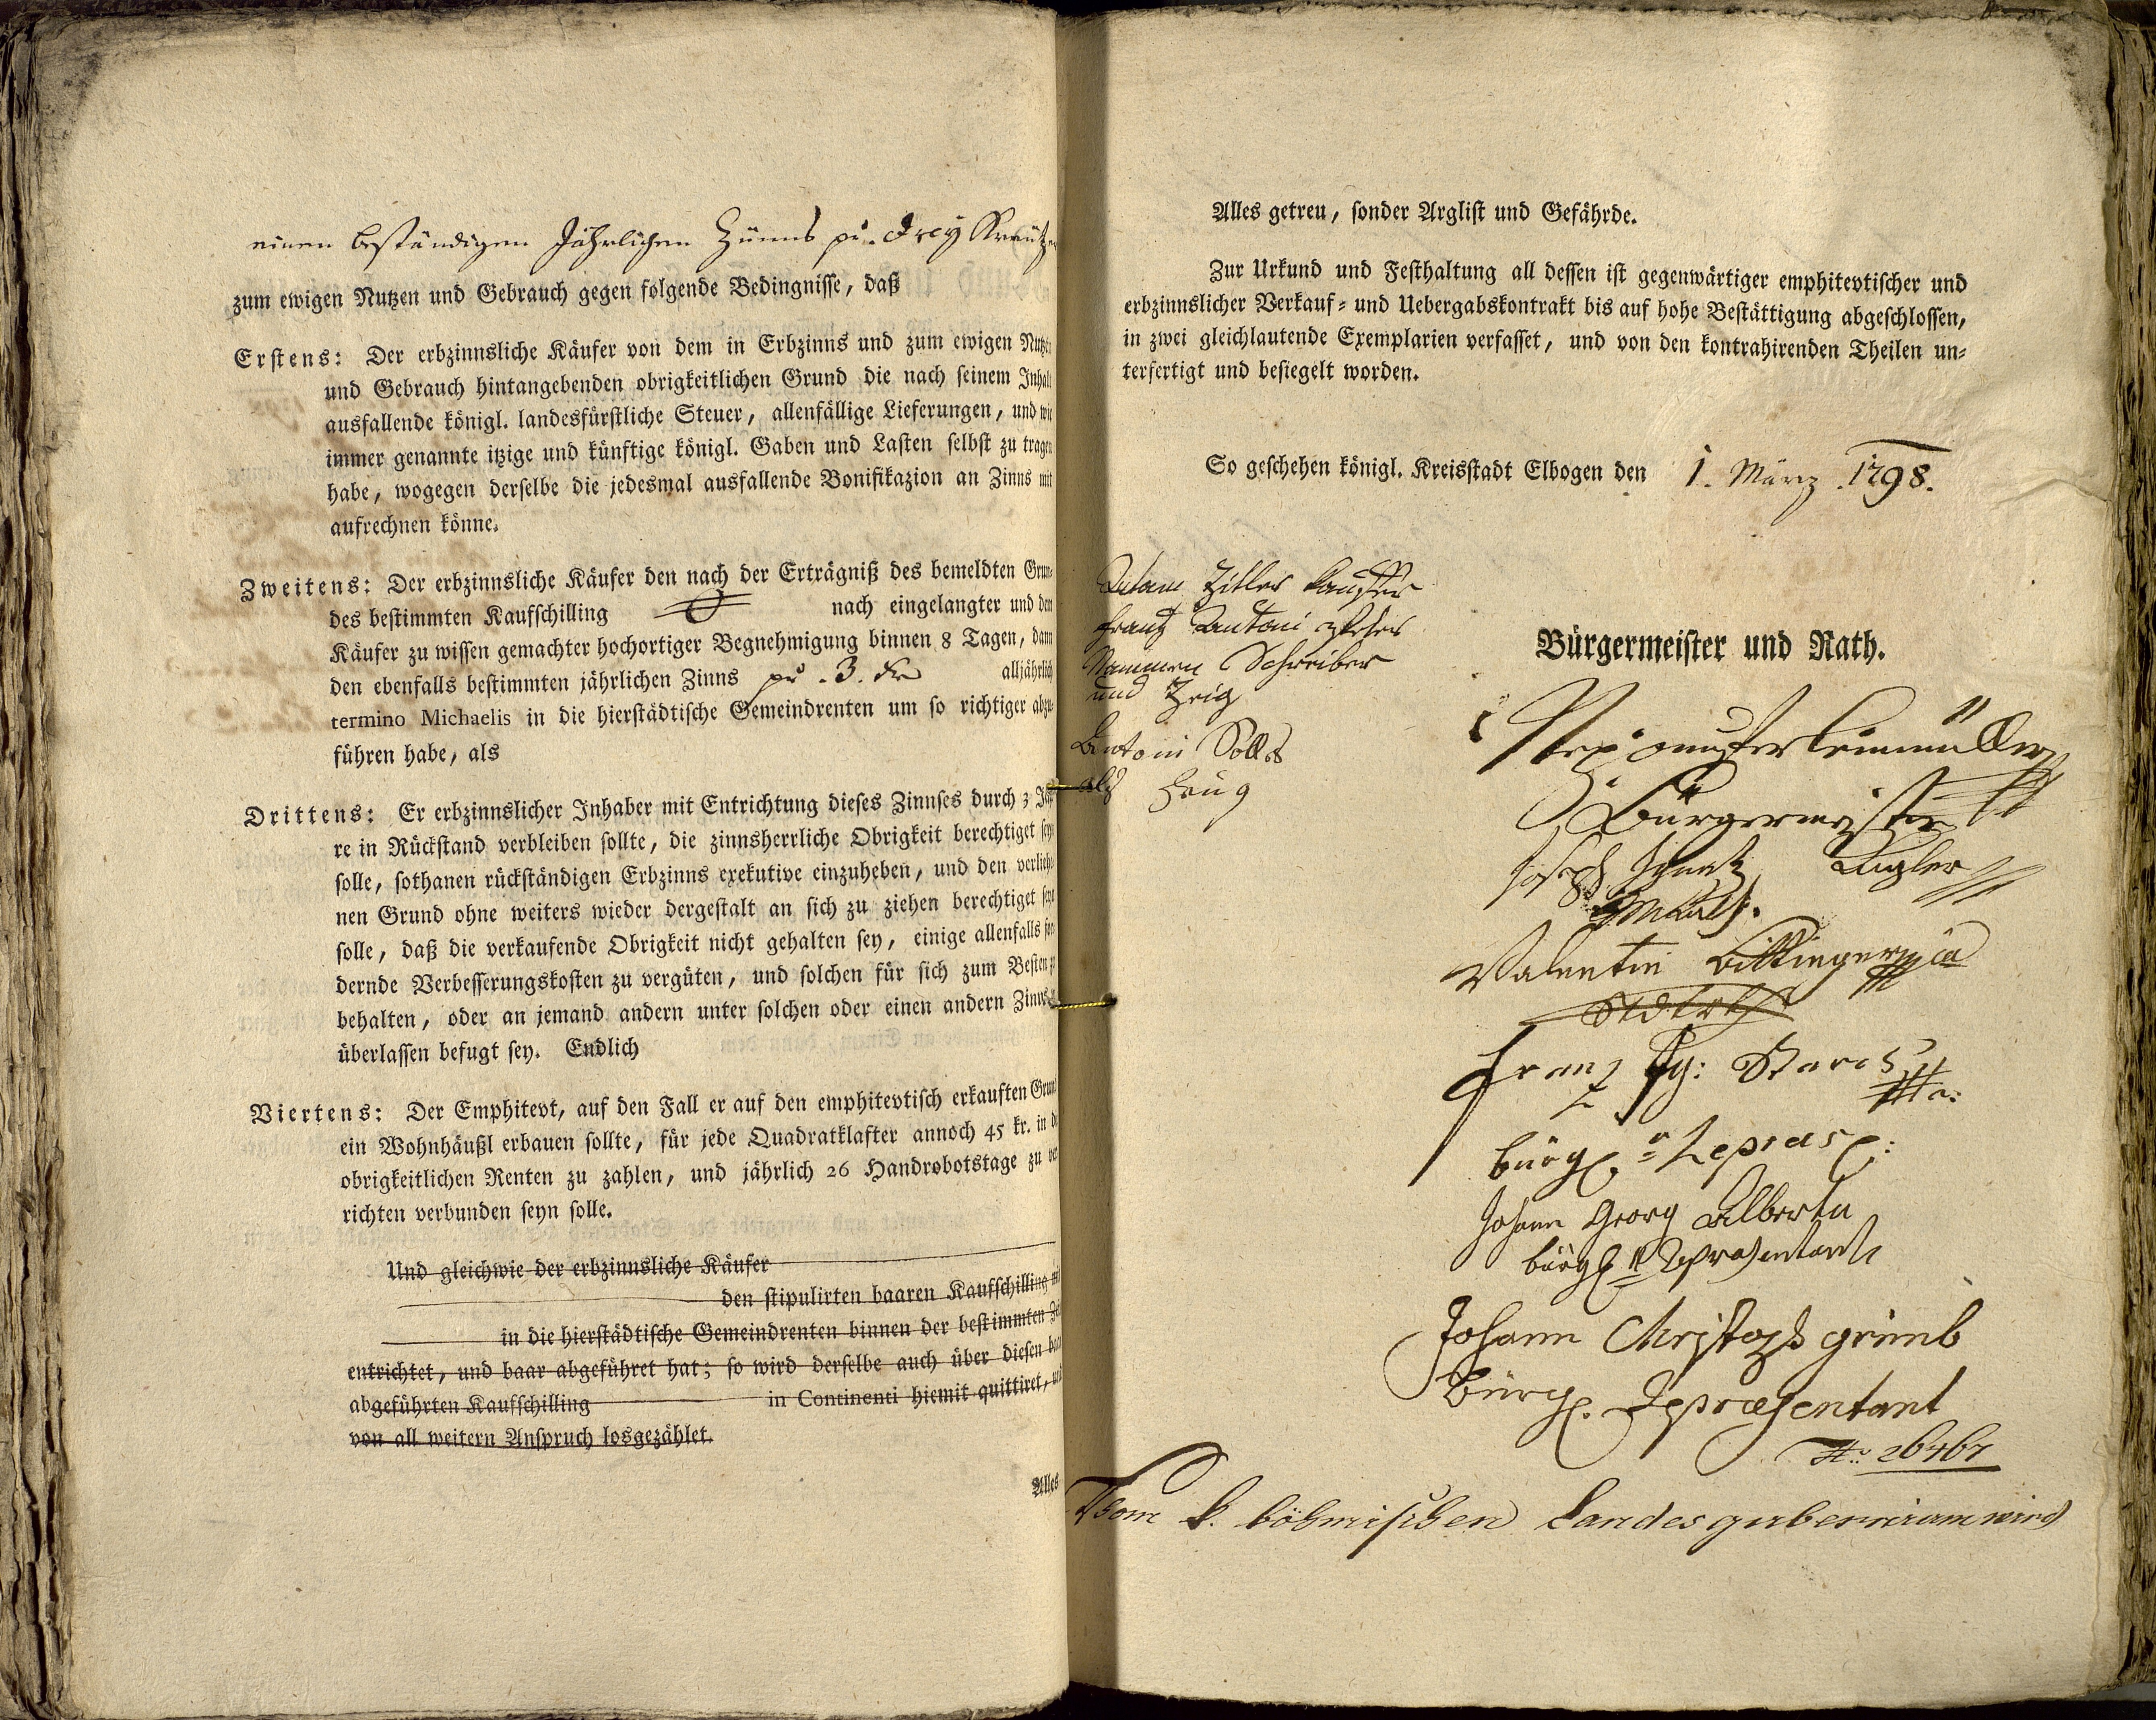 einen beständigen Jährlichen Zünns pr. drey Kreutzer
zum ewigen Nutzen und Gebrauch gegen folgende Bedingnisse, daß
Erstens: Der erbzinnsliche Käufer von dem in Erbzinns und zum ewigen Nutzen
und Gebrauch hintangebenden obrigkeitlichen Grund die nach seinem Inhalt
ausfallende königl. landesfürstliche Steuer, allenfällige Lieferungen, und wie
immer genannte itzige und künftige königl. Gaben und Lasten selbst zu tragen
habe, wogegen derselbe die jedesmal ausfallende Bonifikazion an Zinns mit
aufrechnen könne.
Zweitens: Der erbzinnsliche Käufer den nach der Erträgniß des bemeldten Grun-
des bestimmten Kaufschilling nach eingelangter und dem
Käufer zu wissen gemachter hochortiger Begnehmigung binnen 8 Tagen, dann
den ebenfalls bestimmten jährlichen Zinns pr. 3. Kr alljährlich
termino Michaelis in die hierstädtische Gemeindrenten um so richtiger abzu-
führen habe, als
Drittens: Er erbzinnslicher Inhaber mit Entrichtung dieses Zinnses durch 3 Jah-
re in Rückstand verbleiben sollte, die zinnsherrliche Obrigkeit berechtiget seyn
solle, sothanen rückständigen Erbzinns exekutive einzuheben, und den verliehe-
nen Grund ohne weiters wieder dergestalt an sich zu ziehen berechtiget seyn
solle, daß die verkaufende Obrigkeit nicht gehalten sey, einige allenfalls for-
dernde Verbesserungskosten zu vergüten, und solchen für sich zum Besten zu
behalten, oder an jemand andern unter solchen oder einen andern Zinns
überlassen befugt sey. Endlich
Viertens: Der Emphitevt, auf den Fall er auf den emphitevtisch erkauften Grund
ein Wohnhäußl erbauen sollte, für jede Quadratklafter annoch 45 kr. in die
obrigkeitlichen Renten zu zahlen, und jährlich 26 Handrobotstage zu ver-
richten verbunden seyn solle.
Und gleichwie der erbzinnsliche Käufer
den stipulirten baaren Kaufschilling
in die hierstädtische Gemeindrenten binnen der bestimmten
entrichtet, und baar abgeführet hat; so wird derselbe auch über diesen baar
abgeführten Kaufschilling in Continenti hiemit quittiret, und
von all weitern Anspruch losgezählet.
Alles
Alles getreu, sonder Arglist und Gefährde.
Zur Urkund und Festhaltung all dessen ist gegenwärtiger emphitevtischer und
erbzinnslicher Verkauf- und Uebergabskontrakt bis auf hohe Bestättigung abgeschlossen,
in zwei gleichlautende Exemplarien verfasset, und von den kontrahirenden Theilen un-
terfertigt und besiegelt worden.
So geschehen königl. Kreisstadt Elbogen den 1. März 1798.
Adam Zitler Kauffer
Frantz Antoni
Nammen Schreiber
und Zeig
Antoni
als Zeug
Bürgermeister und Rath.
Bürgermeister
Joseph Ignatz
Valentin
Franz Ig:
bürgl. Repraes:
Johann Georg Alberta
bürgl. Repraesentant
Johann Christoph grimb
Bürgl. Repraesentant
Nro. 26467
Vom k. böhmischen Landesgubernium wird